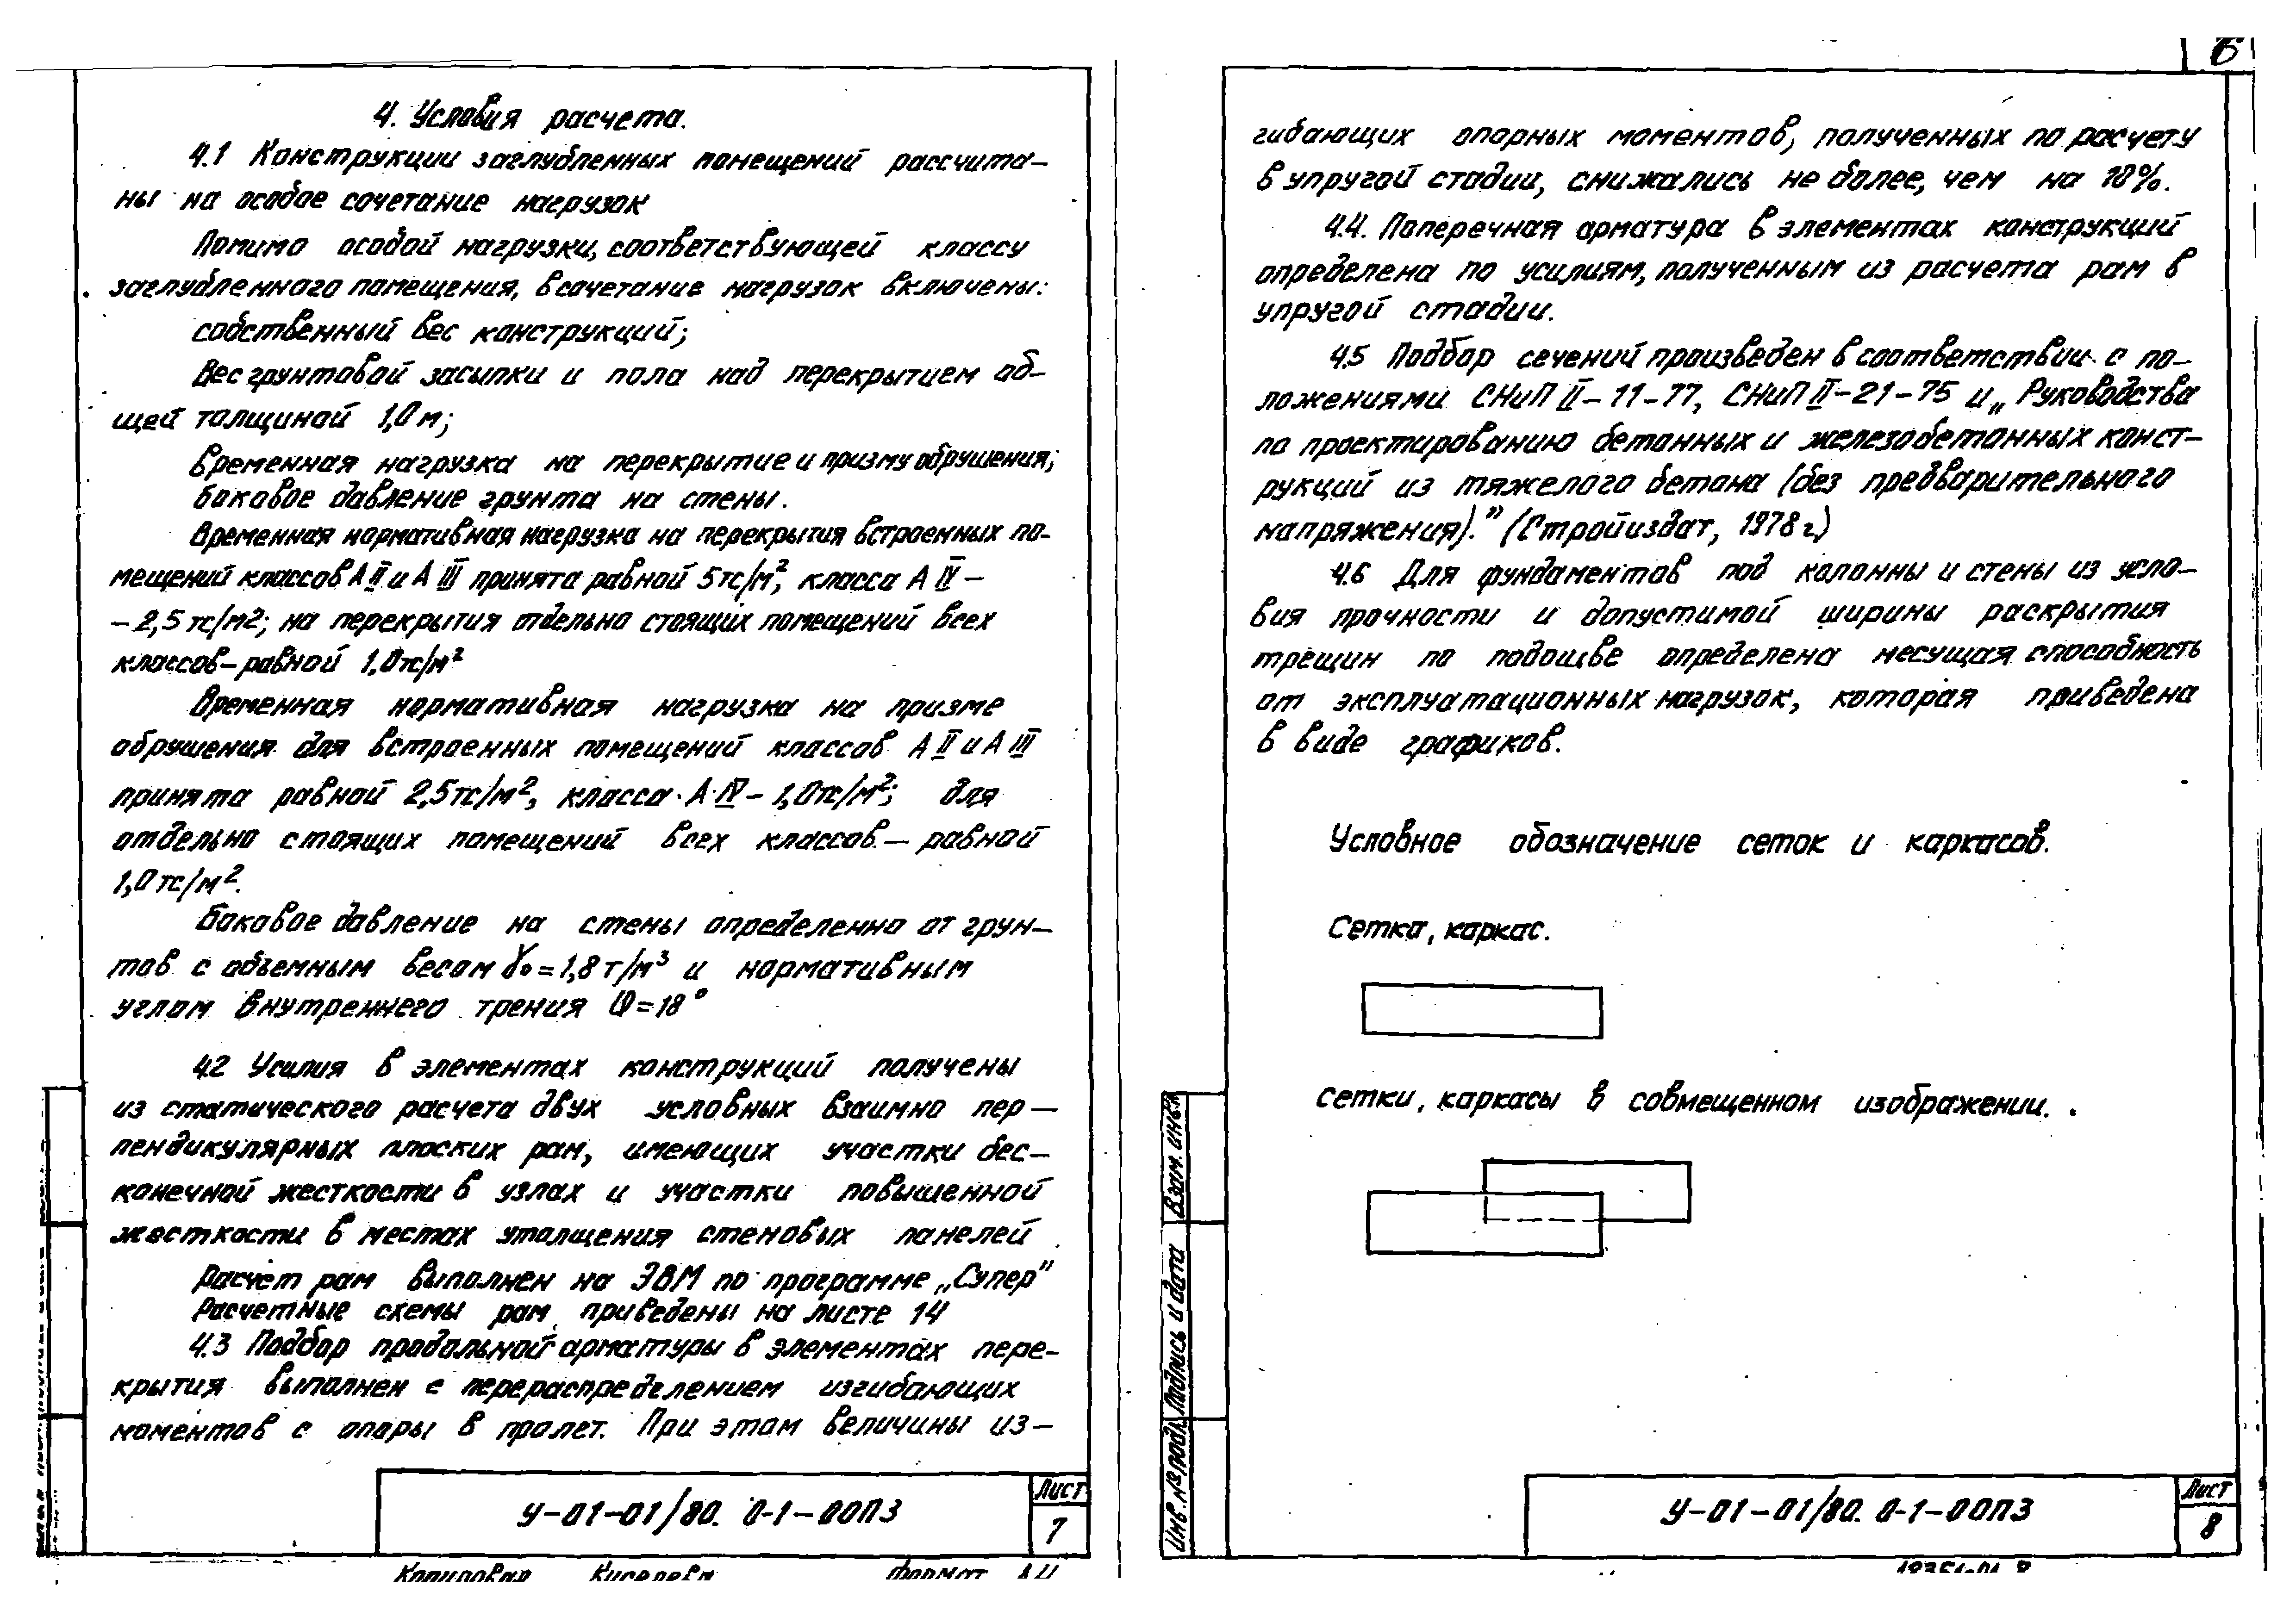 4. Условия расчета.
4.1 Конструкции заглубленных помещений рассчита-
ны на особое сочетание нагрузок
Помимо особой нагрузки, соответствующей классу
заглубленного помещения, в сочетание нагрузок включены:
собственный вес конструкций;
Вес грунтовой засыпки и пола над перекрытием об-
щей толщиной 1,0 м;
временная нагрузка на перекрытие и призму обрушения;
боковое давление грунта на стены.
Временная нормативная нагрузка на перекрытия встроенных по-
мещений классов А II и А III принята равной 5тс/м², класса А IV –
– 2,5 тс/м2; на перекрытия отдельно стоящих помещений всех
классов – равной 1,0тс/м²
Временная нормативная нагрузка на призме
обрушения для встроенных помещений классов А II и А III
принята равной 2,5тс/м², класса А IV – 1,0тс/м²; для
отдельно стоящих помещений всех классов – равной
1,0 тс/м².
Боковое давление на стены определенно от грун-
тов с объемным весом γ₀ = 1,8 т/м³ и нормативным
углом внутреннего трения φ = 18°
4.2 Усилия в элементах конструкций получены
из статического расчета двух условных взаимно пер-
пендикулярных плоских рам, имеющих участки бес-
конечной жесткости в узлах и участки повышенной
жесткости в местах утолщения стеновых панелей
Расчет рам выполнен на ЭВМ по программе „Супер"
Расчетные схемы рам приведены на листе 14
4.3 Подбор продольной арматуры в элементах пере-
крытия выполнен с перераспределением изгибающих
моментов с опоры в пролет. При этом величины из-
У-01-01/80. 0-1-00ПЗ
Лист
7
Копировал Киселева Формат
6
гибающих опорных моментов, полученных по расчету
в упругой стадии, снижались не более, чем на 10%.
4.4. Поперечная арматура в элементах конструкций
определена по усилиям, полученным из расчета рам в
упругой стадии.
4.5 Подбор сечений произведен в соответствии с по-
ложениями СНиП II – 11 – 77, СНиП II – 21 – 75 и „Руководства
по проектированию бетонных и железобетонных конст-
рукций из тяжелого бетона (без предварительного
напряжения)." (Стройиздат, 1978 г.)
4.6 Для фундаментов под колонны и стены из усло-
вия прочности и допустимой ширины раскрытия
трещин по подошве определена несущая способность
от эксплуатационных нагрузок, которая приведена
в виде графиков.
Условное обозначение сеток и каркасов.
Сетка, каркас.
сетки, каркасы в совмещенном изображении.
Взам. инв.№
Подпись и дата
Инв. № подл.
У-01-01/80. 0-1-00ПЗ
Лист
8